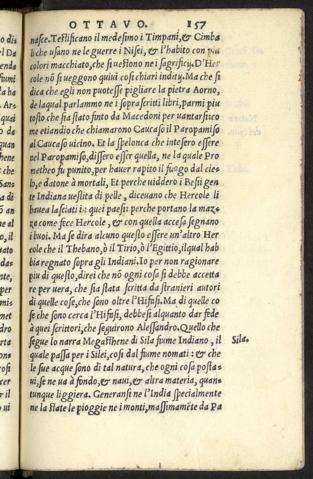 OTTAVO. 157
nasce. Testificano il medesimo i Timpani, & Cimba
li che usano ne le guerre i Nisei, & l'habito con piu
colori macchiato, che si uestono ne i sagrificÿ. D'Her
cole nõ si ueggono quiui cosi chiari indity. Ma che si
dica che egli non puotesse pigliare la pietra Aorno,
de laqual parlammo ne i soprascritti libri, parmi piu
tosto che sia stato finto da Macedoni per uantarsi: co
me etiandio che chiamarono Caucaso il Paropamiso
al Caucaso uicino. Et la spelonca che intesero essere
nel Paropamiso, dissero esser quella, ne la quale Pro
metheo fu punito, per hauer rapito il fuogo dal cie-
lo, e datone à mortali. Et perche uiddero i Besii gen
te Indiana uestita di pelle, diceuano che Hercole li
hauea lasciati iui: quei paesi perche portano la maz-
za come fece Hercole, & con quella accesa segnano
i buoi. Ma se dira alcuno questo essere un'altro Her
cole che il Thebano, ò il Tirio, ò l'Egittio, ilqual hab
bia regnato sopra gli Indiani. Io per non ragionare
piu di questo, direi che nõ ogni cosa si debbe accetta
re per uera, che sia stata scritta da stranieri autori
di quelle cose, che sono oltre l'Hifasi. Ma di quelle co
se che sono cerca l'Hifasi, debbesi alquanto dar fede
à quei scrittori, che seguirono Alessandro. Quello che
segue lo narra Megasthene di Sila fiume Indiano, il
Sila.
quale passa per i Silei, cosi dal fiume nomati: & che
le sue acque sono di tal natura, che ogni cosa posta-
ui, se ne ua à fondo, & naui, & altra materia, quan-
tunque liggiera. Generansi ne l'India specialmente
ne la state le pioggie ne i monti, massimamēte da Pa